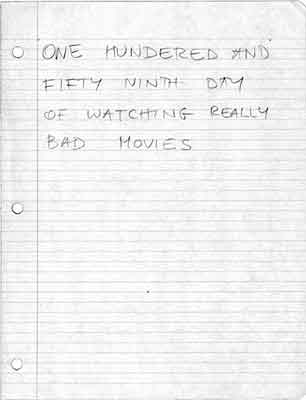 ONE HUNDERED AND
FIFTY NINTH DAY
OF WATCHING REALLY
BAD MOVIES